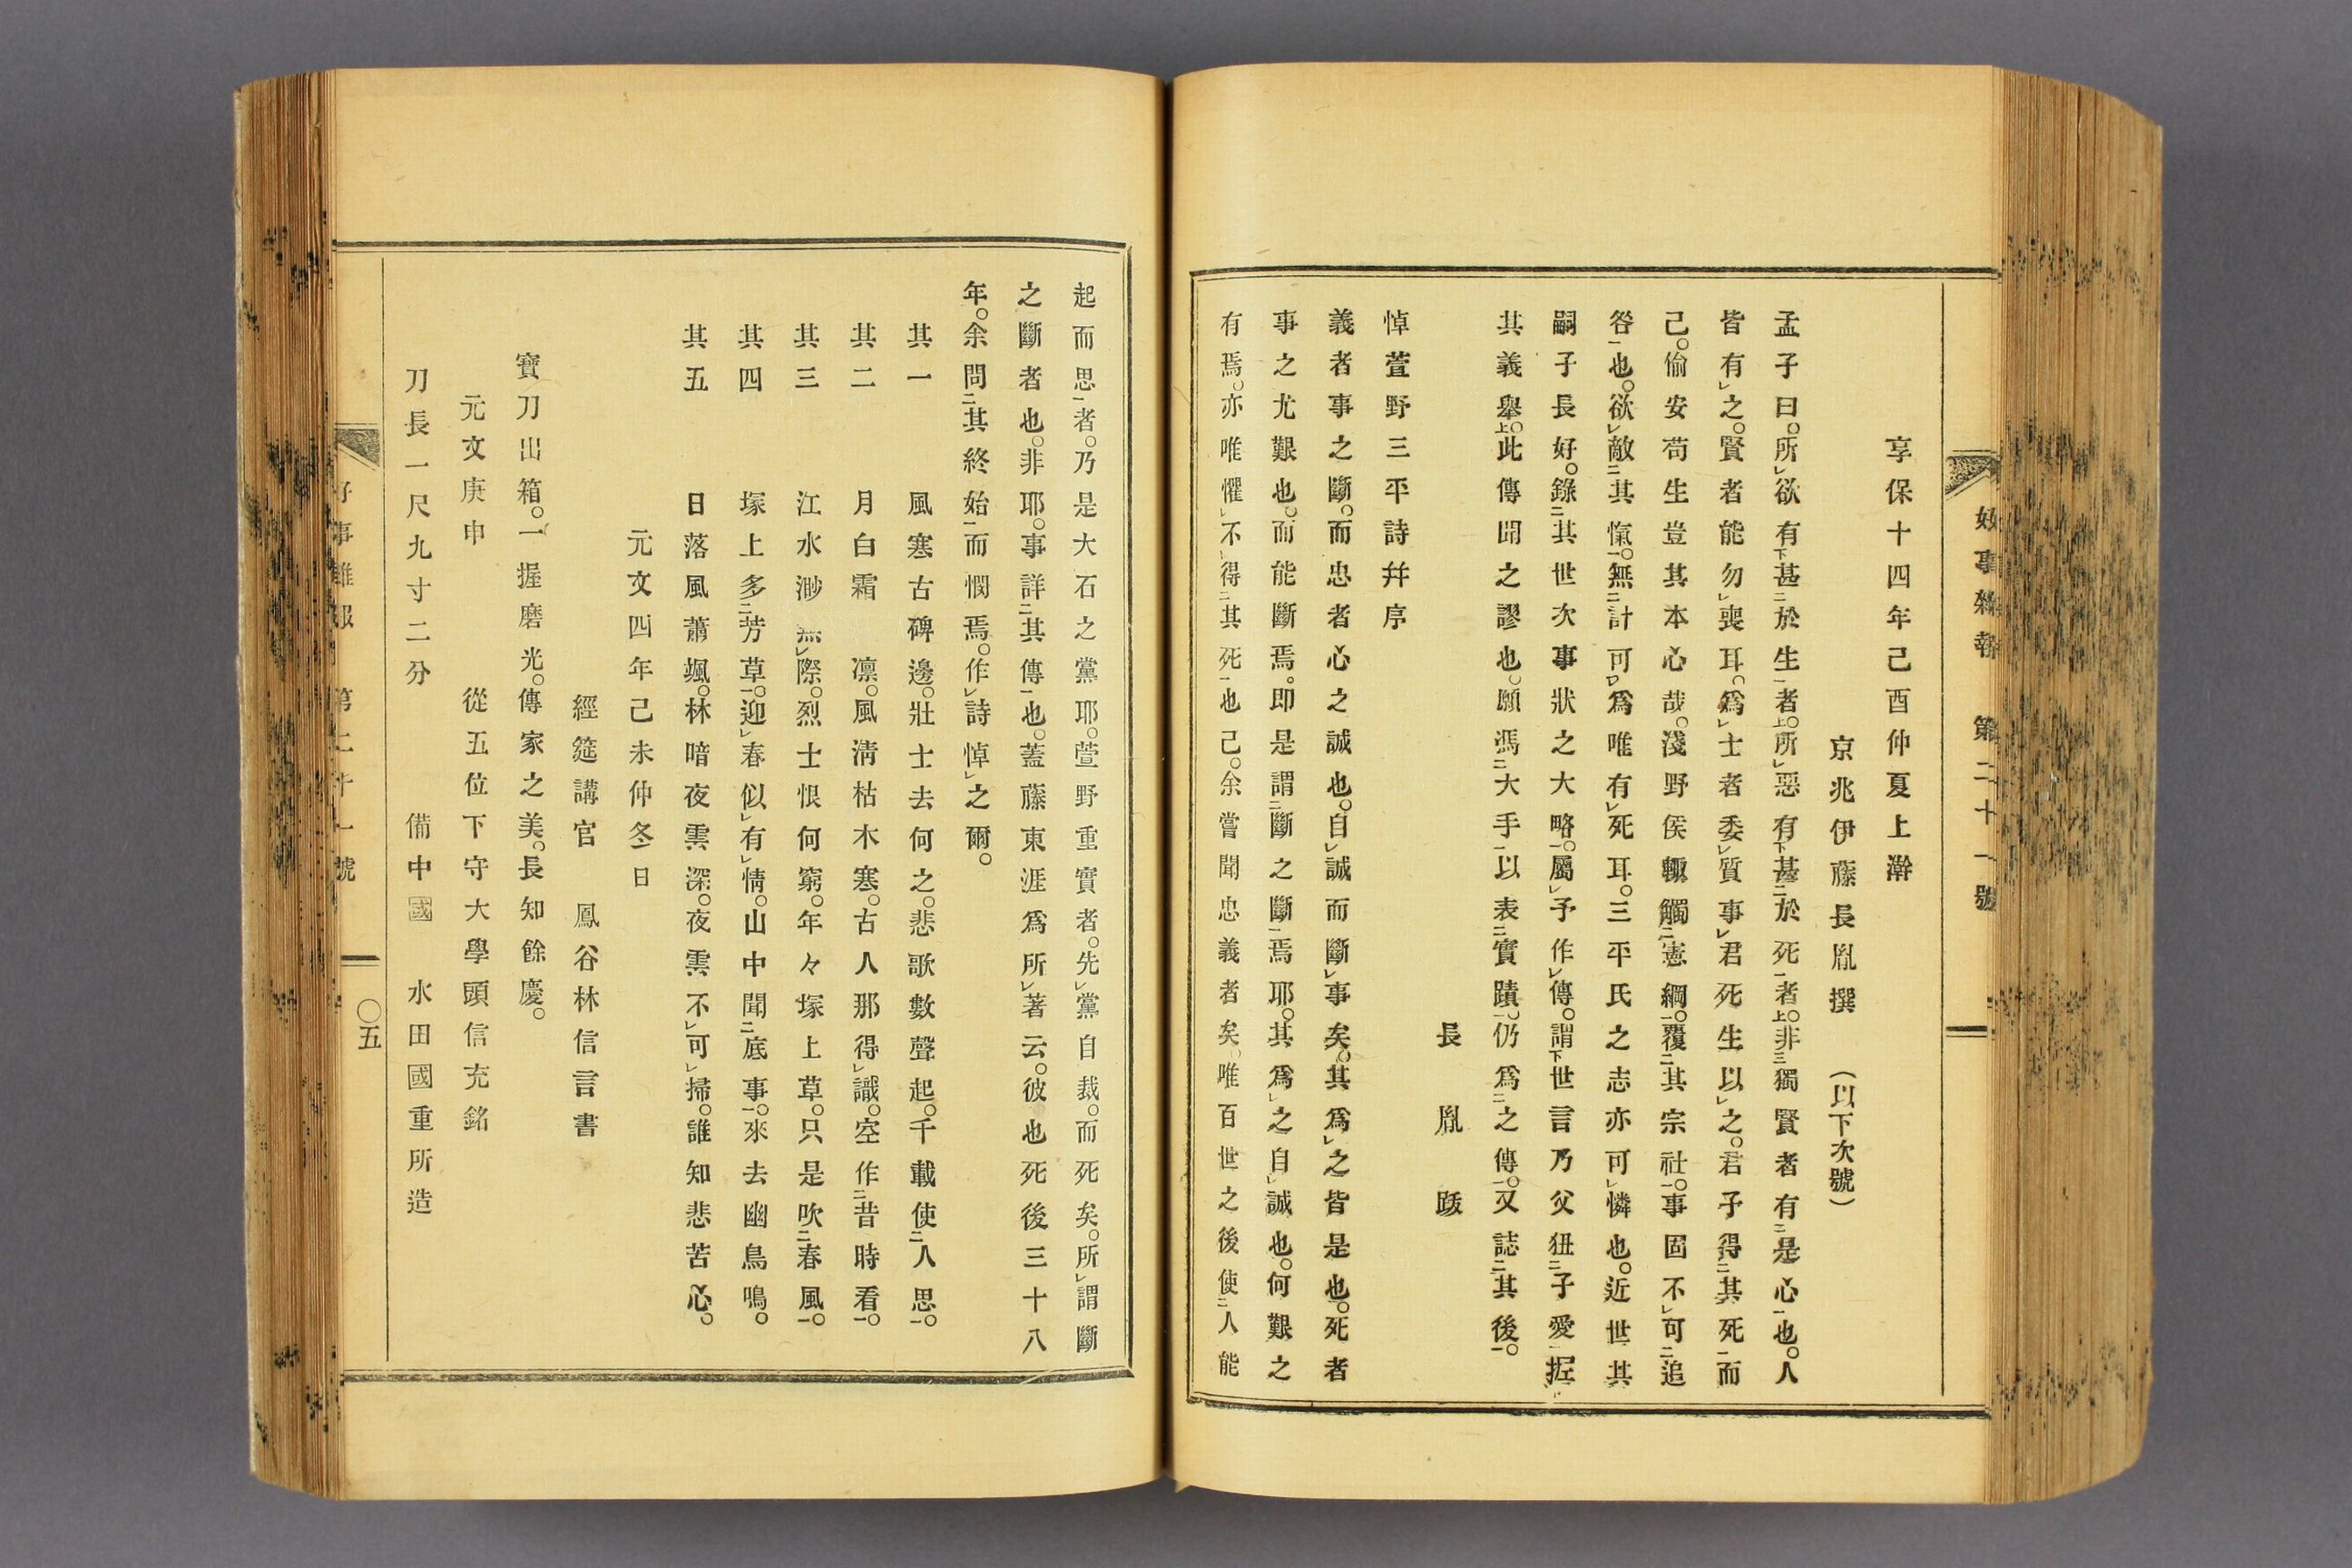 好事雜報　第二十一號
享保十四年己酉仲夏上澣
京兆伊藤長胤撰　（以下次號）
孟子曰。所レ欲有下甚二於生一者上。所レ惡有下甚二於死一者上。非三獨賢者有二是心一也。人
皆有レ之。賢者能勿レ喪耳。爲レ士者委レ質事レ君死生以レ之。君子得二其死一而
己。偷安苟生豈其本心哉。淺野侯輙觸二憲綱一。覆二其宗社一。事固不レ可二追
咎一也。欲レ敵二其愾一。無二計可一レ爲唯有レ死耳。三平氏之志亦可レ憐也。近世其
嗣子長好。錄二其世次事狀之大略一。屬レ予作レ傳。謂下世言乃父狃二子愛一掟二
其義舉上。此傳聞之謬也。願馮二大手一以表二實蹟一。仍爲二之傳一。又誌二其後一。
長胤跋
悼萱野三平詩幷序
義者事之斷。而忠者心之誠也。自レ誠而斷レ事矣。其爲レ之皆是也。死者
事之尤艱也。而能斷焉。即是謂二斷之斷一焉耶。其爲レ之自レ誠也。何艱之
有焉。亦唯懼レ不レ得二其死一也己。余嘗聞忠義者矣。唯百世之後使二人能
起而思一者。乃是大石之黨耶。萱野重實者。先レ黨自裁。而死矣。所レ謂斷
之斷者也。非耶。事詳二其傳一也。蓋藤東涯爲所レ著云。彼也死後三十八
年。余問二其終始一而憫焉。作レ詩悼レ之爾。
其一　風寒古碑邊。壯士去何之。悲歌數聲起。千載使二人思一。
其二　月白霜　凛。風淸枯木寒。古人那得レ識。空作二昔時看一。
其三　江水渺無レ際。烈士恨何窮。年々塚上草。只是吹二春風一。
其四　塚上多二芳草一。迎レ春似レ有レ情。山中聞二底事一。來去幽鳥鳴。
其五　日落風蕭颯。林暗夜雲深。夜雲不レ可レ掃。誰知悲苦心。
元文四年己未仲冬日
經筵講官　鳳谷林信言書
寶刀出箱。一握磨光。傳家之美。長知餘慶。
元文庚申　從五位下守大學頭信充銘
刀長一尺九寸二分　備中國　水田國重所造
好事雜報　第二十一號　〇五